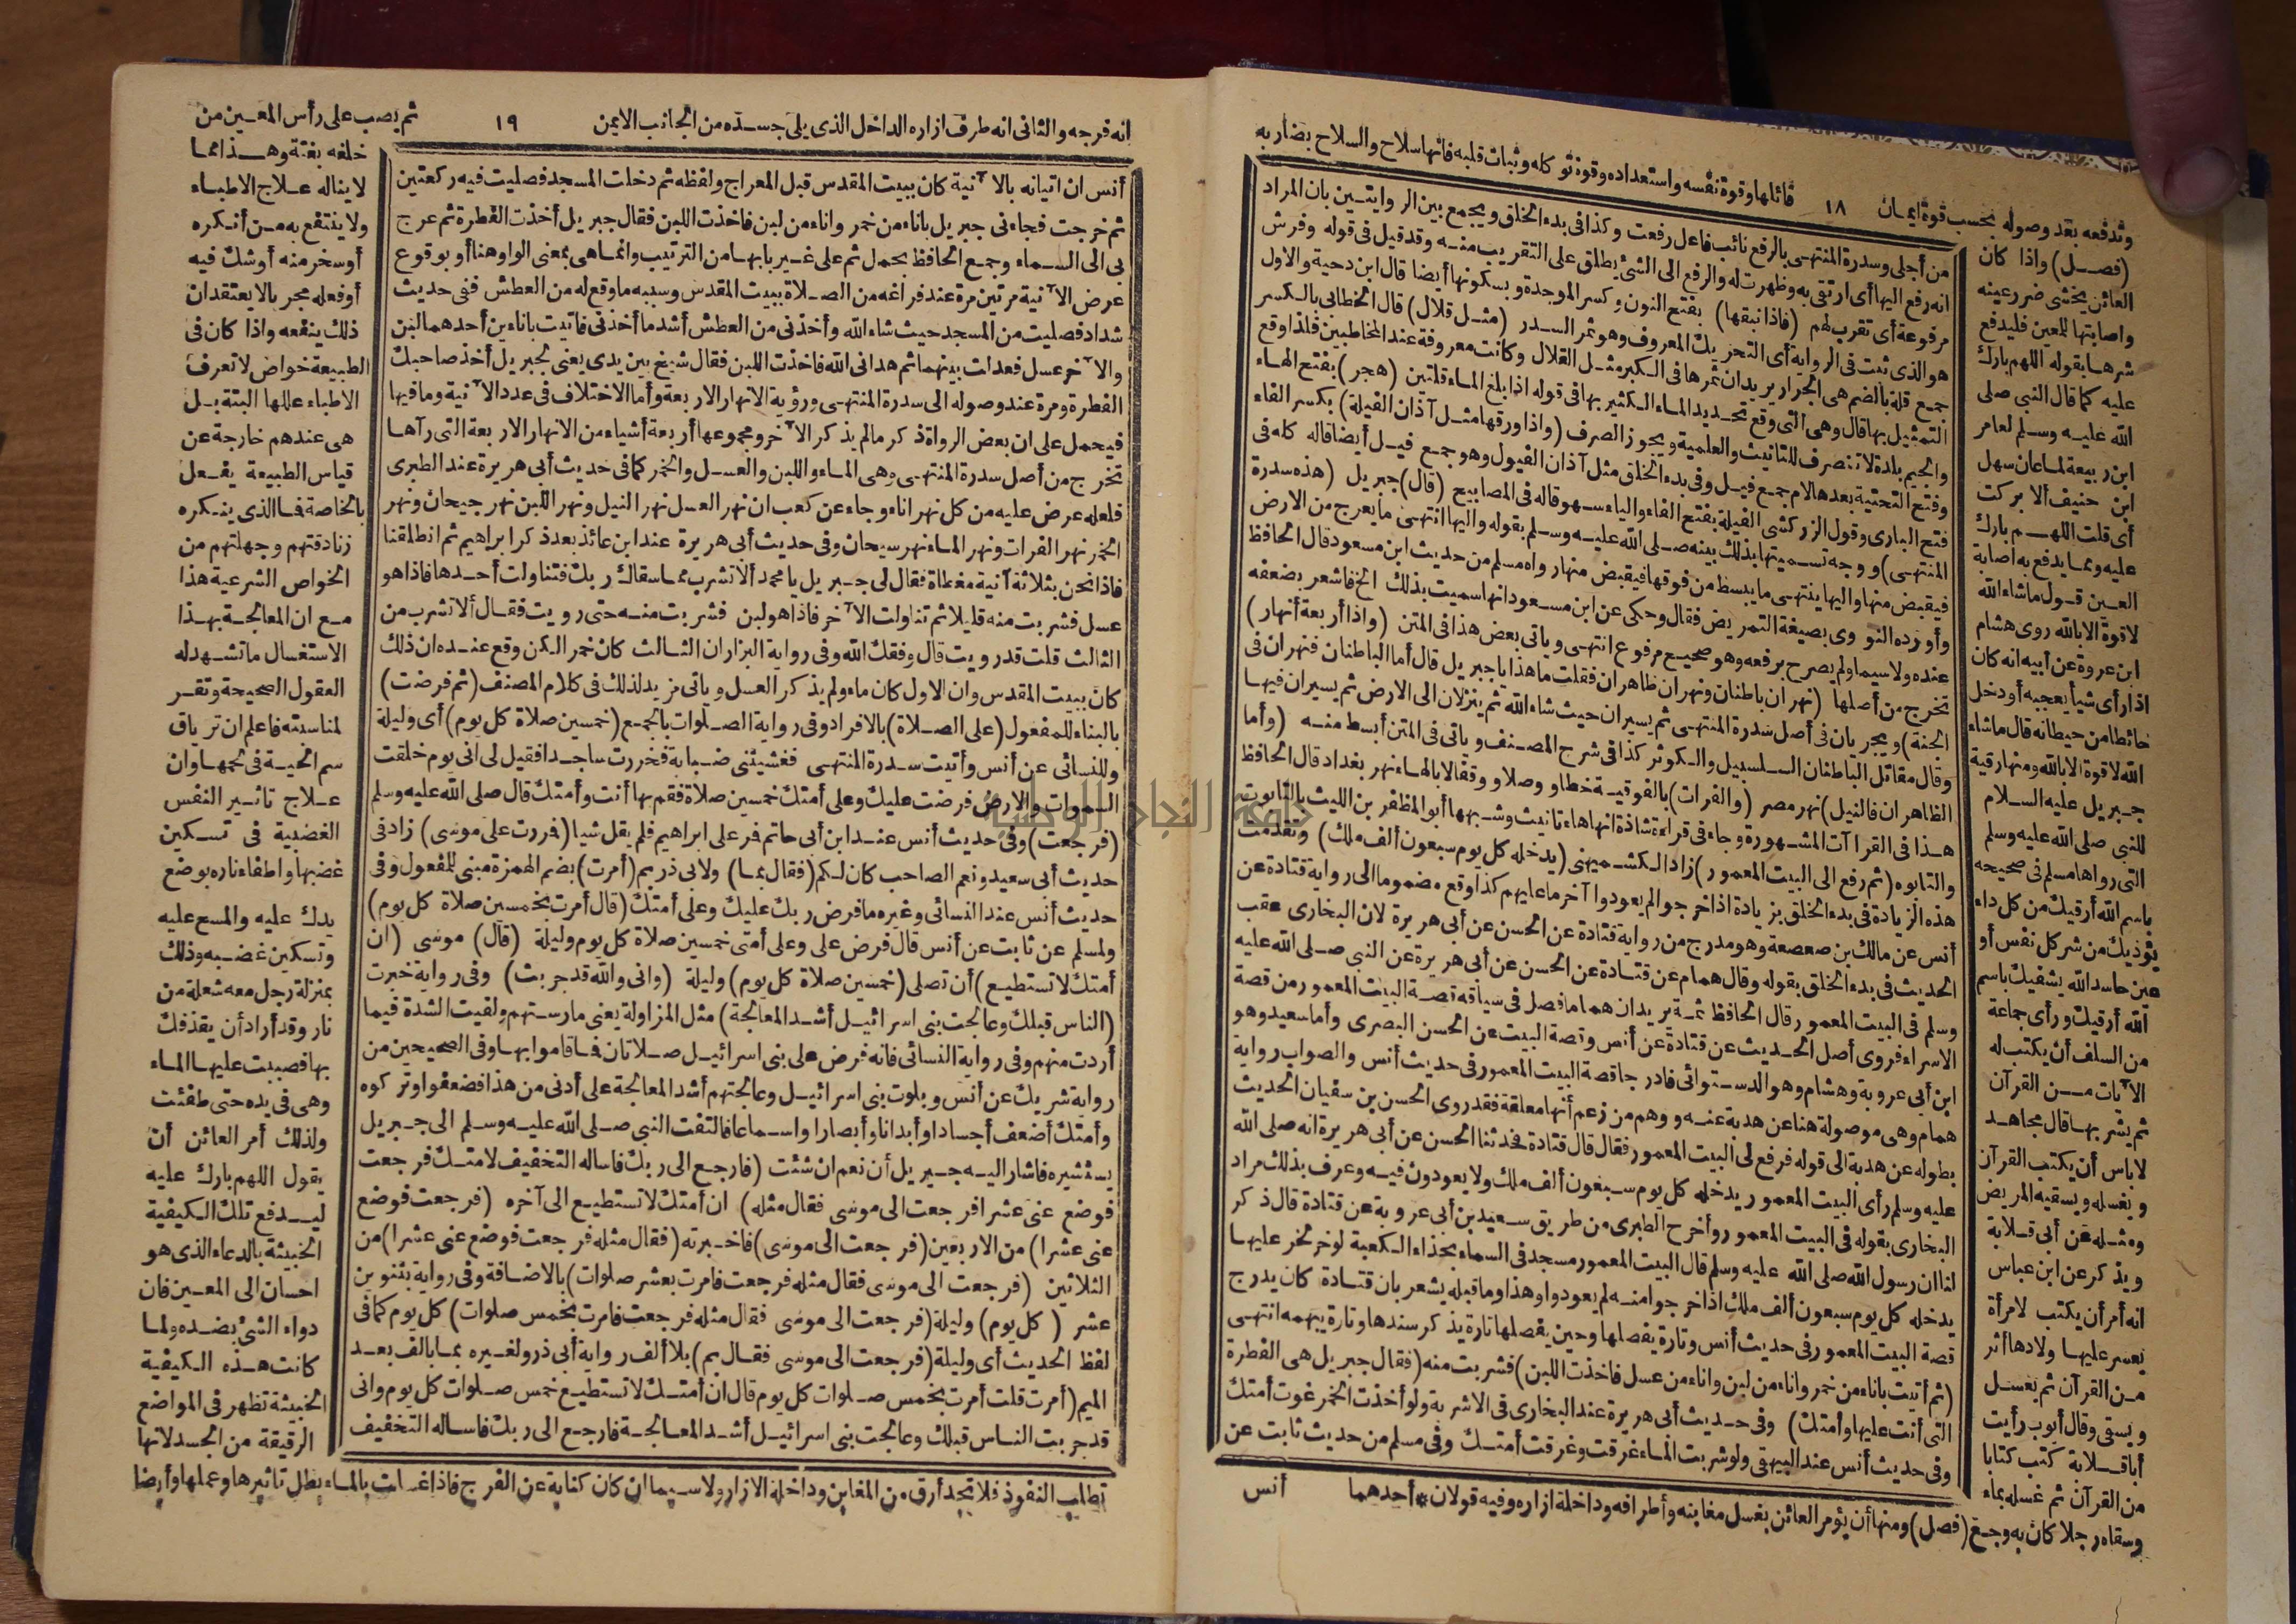 وتدفعه بعد وصوله بحسب قوة ايمان ١٨ قائلها وقوة نفسه واستعداده وقوة توكله وثبات قلبه فانها سلاح والسلاح بضاربه
(فصل) واذا كان
العائن يخشى ضرر عينه
واصابتها للمعين فليدفع
شرها بقوله اللهم بارك
عليه كما قال النبي صلى
الله عليه وسلم لعامر
ابن ربيعة لما عان سهل
ابن حنيف ألا بركت
أى قلت اللهم بارك
عليه ومما يدفع به اصابة
العين قول ما شاء الله
لا قوة الا بالله روى هشام
ابن عروة عن أبيه انه كان
اذا رأى شيأ يعجبه أو دخل
حائطا من حيطانه قال ما شاء
الله لا قوة الا بالله ومنها رقية
جبريل عليه السلام
للنبي صلى الله عليه وسلم
التى رواها مسلم فى صحيحه
باسم الله أرقيك من كل داء
يؤذيك من شر كل نفس أو
عين حاسد الله يشفيك باسم
الله أرقيك ورأى جماعة
من السلف أن يكتب له
الآيات من القرآن
ثم يشربها قال مجاهد
لا بأس أن يكتب القرآن
ويغسله ويسقيه المريض
ومثله عن أبى قلابة
ويذكر عن ابن عباس
انه أمر أن يكتب لامرأة
تعسر عليها ولادها أثر
من القرآن ثم يغسل
ويسقى وقال أيوب رأيت
أبا قلابة كتب كتابا
من القرآن ثم غسله بماء
من أجلى وسدرة المنتهى بالرفع نائب فاعل رفعت وكذا فى بدء الخلق ويجمع بين الروايتين بان المراد
انه رفع اليها أى ارتقى به وظهرت له والرفع الى الشئ يطلق على التقريب منه وقد قيل فى قوله وفرش
مرفوعة أى تقرب لهم (فاذا نبقها) بفتح النون وكسر الموحدة وبسكونها أيضا قال ابن دحية والاول
هو الذى ثبت فى الرواية أى التحريك المعروف وهو ثمر السدر (مثل قلال) قال الخطابى بالكسر
جمع قلة بالضم هى الجرار يريد ان ثمرها فى الكبر مثل القلال وكانت معروفة عند المخاطبين فلذا وقع
التمثيل بها قال وهى التى وقع تحديد الماء الكثير بها فى قوله اذا بلغ الماء قلتين (هجر) بفتح الهاء
والجيم بلدة لا تنصرف للتانيث والعلمية ويجوز الصرف (واذا ورقها مثل آذان الفيلة) بكسر الفاء
وفتح التحتية بعدها لام جمع فيل وفى بدء الخلق مثل آذان الفيول وهو جمع فيل أيضا قاله كله فى
فتح البارى وقول الزركشى الفيلة بفتح الفاء والياء سهو قاله فى المصابيح (قال) جبريل (هذه سدرة
المنتهى) ووجه تسميتها بذلك بينه صلى الله عليه وسلم بقوله واليها انتهى ما يعرج من الارض
فيقبض منها واليها ينتهى ما يبسط من فوقها فيقبض منها رواه مسلم من حديث ابن مسعود قال الحافظ
وأورده النووى بصيغة التمريض فقال وحكى عن ابن مسعود انها سميت بذلك الخ فاشعر بضعفه
عنده ولا سيما ولم يصرح برفعه وهو صحيح مرفوع انتهى وياتى بعض هذا فى المتن (واذا أربعة أنهار)
تخرج من أصلها (نهران باطنان ونهران ظاهران فقلت ما هذا يا جبريل قال أما الباطنان فنهران فى
الجنة) ويجريان فى أصل سدرة المنتهى ثم يسيران حيث شاء الله ثم ينزلان الى الارض ثم يسيران فيها
وقال مقاتل الباطنان السلسبيل والكوثر كذا فى شرح المصنف وياتى فى المتن أبسط منه (وأما
الظاهران فالنيل) نهر مصر (والفرات) بالفوقية خطا ووصلا ووقفا لا بالهاء نهر بغداد قال الحافظ
هذا فى القراآت المشهورة وجاء فى قراءة شاذة انها هاء تانيث وشبهها أبو المظفر بن الليث بالتابوت
والتابوه (ثم رفع الى البيت المعمور) زاد الكشميهنى (يدخله كل يوم سبعون ألف ملك) وتقدمت
هذه الزيادة فى بدء الخلق بزيادة اذا خرجوا لم يعودوا آخر ما عليهم كذا وقع مضموما الى رواية قتادة عن
أنس عن مالك بن صعصعة وهو مدرج من رواية قتادة عن الحسن عن أبى هريرة لان البخارى عقب
الحديث فى بدء الخلق بقوله وقال همام عن قتادة عن الحسن عن أبى هريرة عن النبى صلى الله عليه
وسلم فى البيت المعمور قال الحافظ ثمة يريد ان هماما فصل فى سياقه قصة البيت المعمور من قصة
الاسراء فروى أصل الحديث عن قتادة عن أنس وقصة البيت عن الحسن البصرى وأما سعيد وهو
ابن أبى عروبة وهشام وهو الدستوائى فادرجا قصة البيت المعمور فى حديث أنس والصواب رواية
همام وهى موصولة هنا عن هدبة عنه ووهم من زعم أنها معلقة فقد روى الحسن بن سفيان الحديث
بطوله عن هدبة الى قوله فرفع لى البيت المعمور فقال قال قتادة فحدثنا الحسن عن أبى هريرة انه صلى الله
عليه وسلم رأى البيت المعمور يدخله كل يوم سبعون ألف ملك ولا يعودون فيه وعرف بذلك مراد
البخارى بقوله فى البيت المعمور وأخرج الطبرى من طريق سعيد بن أبى عروبة عن قتادة قال ذكر
لنا ان رسول الله صلى الله عليه وسلم قال البيت المعمور مسجد فى السماء بحذاء الكعبة لو خر لخر عليها
يدخله كل يوم سبعون ألف ملك اذا خرجوا منه لم يعودوا وهذا وما قبله يشعر بان قتادة كان يدرج
قصة البيت المعمور فى حديث أنس وتارة يفصلها وحين يفصلها تارة يذكر سندها وتارة يبهمه انتهى
(ثم أتيت باناء من خمر واناء من لبن واناء من عسل فاخذت اللبن) فشربت منه (فقال جبريل هى الفطرة
التى أنت عليها وأمتك) وفى حديث أبى هريرة عند البخارى فى الاشربة ولو أخذت الخمر غوت أمتك
وفى حديث أنس عند البيهقى ولو شربت الماء غرقت وغرقت أمتك وفى مسلم من حديث ثابت عن
وسقاه رجلا كان به وجع (فصل) ومنها أن يؤمر العائن بغسل مغابنه وأطرافه وداخلة ازاره وفيه قولان * أحدهما
أنس
انه فرجه والثانى انه طرف ازاره الداخل الذى يلى جسده من الجانب الايمن ١٩ ثم يصب على رأس المعين من
أنس ان اتيانه بالآنية كان ببيت المقدس قبل المعراج ولفظه ثم دخلت المسجد فصليت فيه ركعتين
ثم خرجت فجاءنى جبريل باناء من خمر واناء من لبن فاخذت اللبن فقال جبريل أخذت الفطرة ثم عرج
بى الى السماء وجمع الحافظ بحمل ثم على غير بابها من الترتيب وانما هى بمعنى الواو هنا أو بوقوع
عرض الآنية مرتين مرة عند فراغه من الصلاة ببيت المقدس وسببه ما وقع له من العطش ففى حديث
شداد فصليت من المسجد حيث شاء الله وأخذنى من العطش أشد ما أخذنى فاتيت باناءين أحدهما لبن
والآخر عسل فعدلت بينهما ثم هدانى الله فاخذت اللبن فقال شيخ بين يدى يعنى لجبريل أخذ صاحبك
الفطرة ومرة عند وصوله الى سدرة المنتهى ورؤية الانهار الاربعة وأما الاختلاف فى عدد الآنية وما فيها
فيحمل على ان بعض الرواة ذكر ما لم يذكر الآخر ومجموعها أربعة أشياء من الانهار الاربعة التى رآها
تخرج من أصل سدرة المنتهى وهى الماء واللبن والعسل والخمر كما فى حديث أبى هريرة عند الطبرى
فلعله عرض عليه من كل نهر اناء وجاء عن كعب ان نهر العسل نهر النيل ونهر اللبن نهر جيحان ونهر
الخمر نهر الفرات ونهر الماء نهر سيحان وفى حديث أبى هريرة عند ابن عائذ بعد ذكر ابراهيم ثم انطلقنا
فاذا نحن بثلاثة آنية مغطاة فقال لى جبريل يا محمد ألا تشرب مما سقاك ربك فتناولت أحدها فاذا هو
عسل فشربت منه قليلا ثم تناولت الآخر فاذا هو لبن فشربت منه حتى رويت فقال ألا تشرب من
الثالث قلت قد رويت قال وفقك الله وفى رواية البزار ان الثالث كان خمر الكن وقع عنده ان ذلك
كان ببيت المقدس وان الاول كان ماء ولم يذكر العسل وياتى مزيد لذلك فى كلام المصنف (ثم فرضت)
بالبناء للمفعول (على الصلاة) بالافراد وفى رواية الصلوات بالجمع (خمسين صلاة كل يوم) أى وليلة
وللنسائى عن أنس وأتيت سدرة المنتهى فغشيتنى ضبابة فخررت ساجدا فقيل لى انى يوم خلقت
السموات والارض فرضت عليك وعلى أمتك خمسين صلاة فقم بها أنت وأمتك قال صلى الله عليه وسلم
(فرجعت) وفى حديث أنس عند ابن أبى حاتم فمر على ابراهيم فلم يقل شيا (فمررت على موسى) زاد فى
حديث أبى سعيد ونعم الصاحب كان لكم (فقال بما) ولابى ذر بم (أمرت) بضم الهمزة مبنى للمفعول وفى
حديث أنس عند النسائى وغيره ما فرض ربك عليك وعلى أمتك (قال أمرت بخمسين صلاة كل يوم)
ولمسلم عن ثابت عن أنس قال فرض على وعلى أمتى خمسين صلاة كل يوم وليلة (قال) موسى (ان
أمتك لا تستطيع) أن تصلى (خمسين صلاة كل يوم) وليلة (وانى والله قد جربت) وفى رواية خبرت
(الناس قبلك وعالجت بنى اسرائيل أشد المعالجة) مثل المزاولة يعنى مارستهم ولقيت الشدة فيما
أردت منهم وفى رواية النسائى فانه فرض على بنى اسرائيل صلاتان فما قاموا بها وفى الصحيحين من
رواية شريك عن أنس وبلوت بنى اسرائيل وعالجتهم أشد المعالجة على أدنى من هذا فضعفوا وتركوه
وأمتك أضعف أجسادا وأبدانا وأبصارا واسماعا فالتفت النبى صلى الله عليه وسلم الى جبريل
يستشيره فاشار اليه جبريل أن نعم ان شئت (فارجع الى ربك فاساله التخفيف لامتك فرجعت
فوضع عنى عشرا فرجعت الى موسى فقال مثله) ان أمتك لا تستطيع الى آخره (فرجعت فوضع
عنى عشرا) من الاربعين (فرجعت الى موسى) فاخبرته (فقال مثله فرجعت فوضع عنى عشرا) من
الثلاثين (فرجعت الى موسى فقال مثله فرجعت فامرت بعشر صلوات) بالاضافة وفى رواية بتنوين
عشر (كل يوم) وليلة (فرجعت الى موسى فقال مثله فرجعت فامرت بخمس صلوات) كل يوم كما فى
لفظ الحديث أى وليلة (فرجعت الى موسى فقال بم) بلا ألف رواية أبى ذر ولغيره بما بالف بعد
الميم (أمرت قلت أمرت بخمس صلوات كل يوم قال ان أمتك لا تستطيع خمس صلوات كل يوم وانى
قد جربت الناس قبلك وعالجت بنى اسرائيل أشد المعالجة فارجع الى ربك فاساله التخفيف
خلفه بغتة وهذا مما
لا يناله علاج الاطباء
ولا ينتفع به من أنكره
أو سخر منه أو شك فيه
أو فعله مجربا لا يعتقد ان
ذلك ينفعه واذا كان فى
الطبيعة خواص لا تعرف
الاطباء عللها البتة بل
هى عندهم خارجة عن
قياس الطبيعة يفعل
بالخاصة فما الذى ينكره
زنادقتهم وجهلتهم من
الخواص الشرعية هذا
مع ان المعالجة بهذا
الاستغسال ما تشهد له
العقول الصحيحة وتقر
لمناسبته فاعلم ان ترياق
سم الحية فى لحمها وان
علاج تاثير النفس
الغضبية فى تسكين
غضبها واطفاء ناره بوضع
يدك عليه والمسح عليه
وتسكين غضبه وذلك
بمنزلة رجل معه شعلة من
نار وقد أراد أن يقذفك
بها فصببت عليها الماء
وهى فى يده حتى طفئت
ولذلك أمر العائن أن
يقول اللهم بارك عليه
ليدفع تلك الكيفية
الخبيثة بالدعاء الذى هو
احسان الى المعين فان
دواء الشئ بضده ولما
كانت هذه الكيفية
الخبيثة تظهر فى المواضع
الرقيقة من الجسد لانها
تطلب النفوذ فلا تجد أرق من المغابن وداخلة الازار ولا سيما ان كان كناية عن الفرج فاذا غسلت بالماء بطل تاثيرها وعملها وأيضا
جامعة النجاح الوطنية